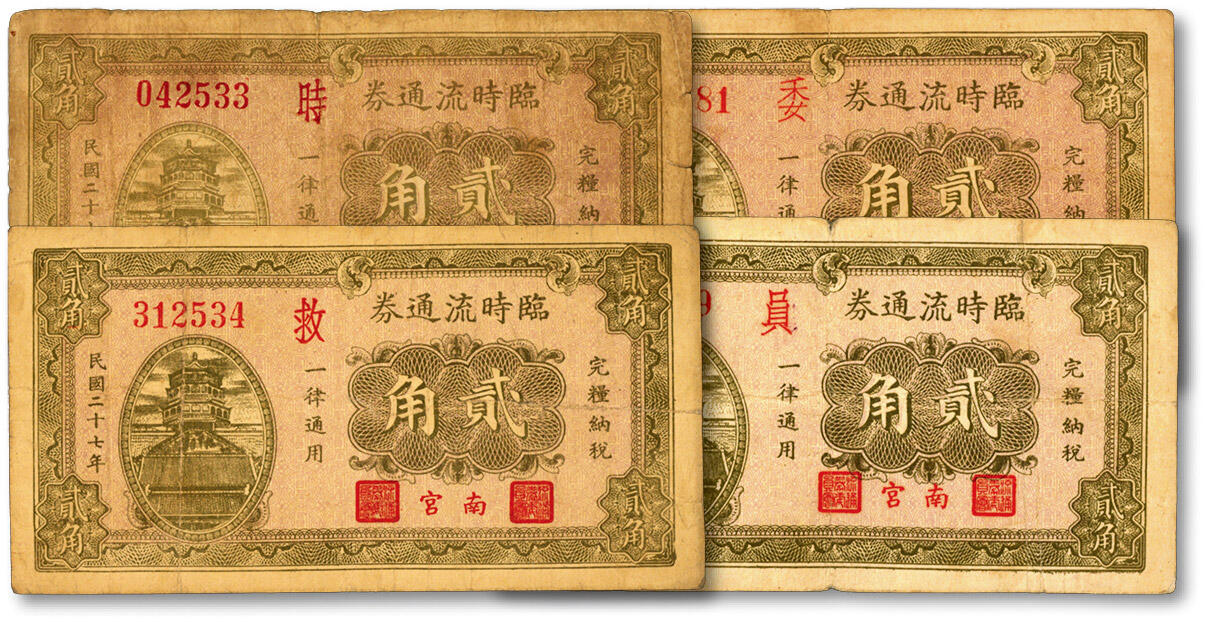 貳角
貳角
臨時流通券
042533
時
完糧納
貳角
一律通
民國二十
貳角
臨時流通券
81
委
完糧納
貳角
一律通
貳角
貳角
臨時流通券
312534
救
完糧納稅
貳角
一律通用
民國二十七年
南宮
貳角
貳角
貳角
臨時流通券
9
員
完糧納稅
貳角
一律通用
南宮
貳角